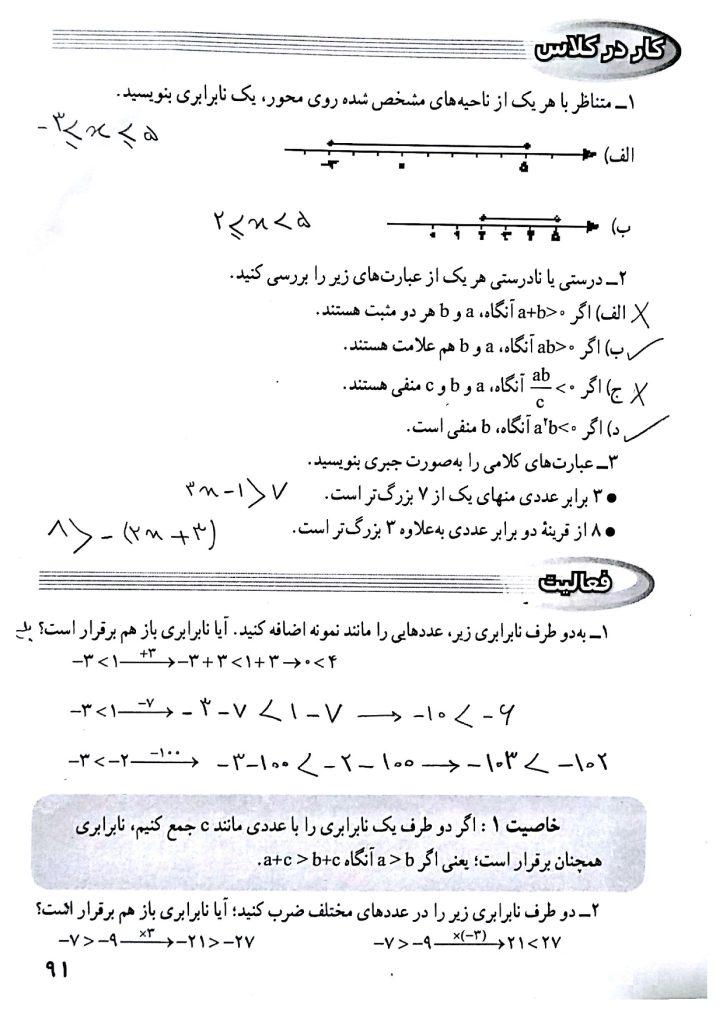 کار در کلاس
۱ــ متناظر با هر یک از ناحیه‌های مشخص شده روی محور، یک نابرابری بنویسید.
الف) -۳ ۰ ۵ -۳ ≤ x ≤ ۵
ب) ۰ ۱ ۲ ۳ ۴ ۵ ۲ ≤ x < ۵
۲ــ درستی یا نادرستی هر یک از عبارت‌های زیر را بررسی کنید.
✗ الف) اگر a+b>۰ آنگاه، a و b هر دو مثبت هستند.
✓ ب) اگر ab>۰ آنگاه، a و b هم علامت هستند.
✗ ج) اگر ab/c < ۰ آنگاه، a و b و c منفی هستند.
✓ د) اگر a²b<۰ آنگاه، b منفی است.
۳ــ عبارت‌های کلامی را به‌صورت جبری بنویسید.
● ۳ برابر عددی منهای یک از ۷ بزرگ‌تر است. ۳x-۱>۷
● ۸ از قرینهٔ دو برابر عددی به‌علاوه ۳ بزرگ‌تر است. ۸>-(۲x+۳)
فعالیت
۱ــ به‌دو طرف نابرابری زیر، عددهایی را مانند نمونه اضافه کنید. آیا نابرابری باز هم برقرار است؟ بله
-۳<۱ —+۳→ -۳+۳<۱+۳→۰<۴
-۳<۱ —-۷→ -۳-۷<۱-۷ → -۱۰<-۶
-۳<-۲ —-۱۰۰→ -۳-۱۰۰<-۲-۱۰۰ → -۱۰۳<-۱۰۲
خاصیت ۱ : اگر دو طرف یک نابرابری را با عددی مانند c جمع کنیم، نابرابری
همچنان برقرار است؛ یعنی اگر a>b آنگاه a+c>b+c.
۲ــ دو طرف نابرابری زیر را در عددهای مختلف ضرب کنید؛ آیا نابرابری باز هم برقرار است؟
-۷>-۹ —×۳→ -۲۱>-۲۷ -۷>-۹ —×(-۳)→ ۲۱<۲۷
۹۱